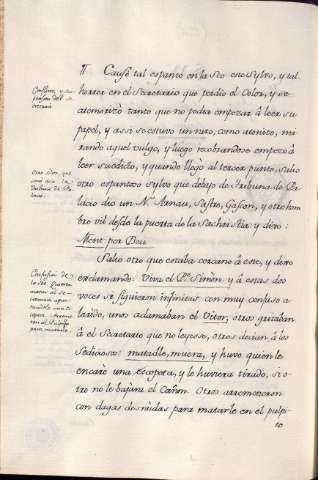 ¶ Causò tal espanto en la Seo este Sylvo, y tal
horror en el Secretario que perdio el Color, y se
atemorizò tanto que no podia empezar â leer su
papel, y assi se estuvo un rato, como atonito, mi-
rando aquel vulgo, y luego recobrandose empezò â
leer su edicto, y quando llegò al tercer punto, salio
otro espantoso sylvo que debajo de Tribuna de Pa-
lacio dio un N. Arnau, Sastre, Gascon, y otro hom-
bre vil desde la puerta de la Sachristia: y dixo:
Mori por Deu
Salio otro que estaba cercano â este, y dixo
exclamando: Viva el Pe. Simon, y â estas dos
voces se siguieron infinitas con muy confuso a-
larido, unos aclamaban el Vitor, otros gritaban
â el Secretario que no leyesse, otros decian â los
Sediciosos: matadle, muera, y huvo quien le
encarò una escopeta, y le huviera tirado, si o-
tro no le bajara el Cañon. Otros arremetieron
con dagas desnudas para matarle en el pulpi-
to
Otro silvo, que
Tribuna de Pa-
lacio
Confusion de